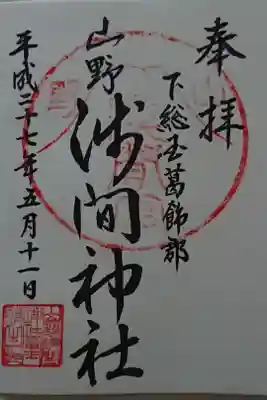 奉拝
下総国葛飾郡
山野浅間神社
平成二十七年五月十一日